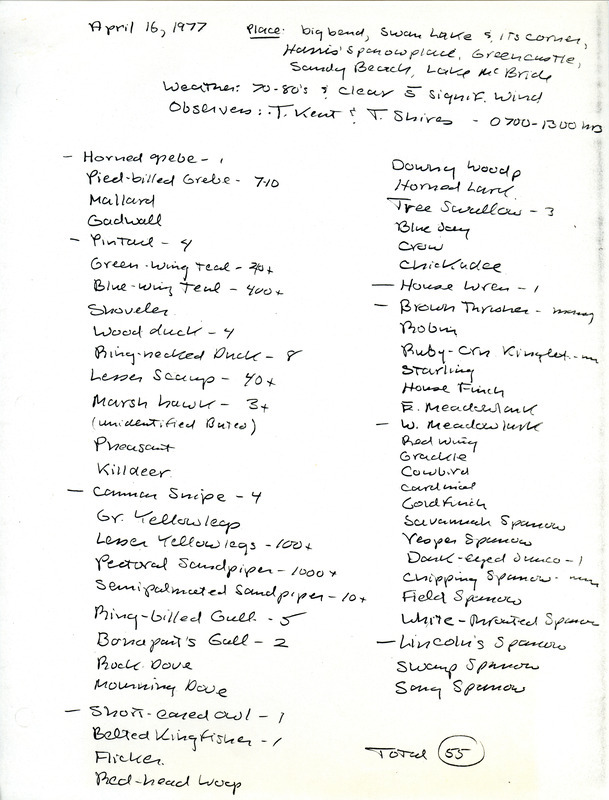 April 16, 1977
Place: big bend, Swan Lake & its corner,
Harris' sparrow place, Greencastle,
Sandy Beach, Lake McBride
Weather: 70-80's & clear s̄ signif. wind
Observers: T. Kent & T. Shires - 0700-1300 hrs
- Horned grebe - 1
Pied-billed Grebe - 7-10
Mallard
Gadwall
- Pintail - 4
Green-wing Teal - 20+
Blue-wing Teal - 400+
Shoveler
Wood duck - 4
Ring-necked Duck - 8
Lesser Scaup - 40+
Marsh hawk - 3+
(unidentified Buteo)
Pheasant
Killdeer
- Common Snipe - 4
Gr. Yellowlegs
Lesser Yellowlegs - 100+
Pectoral Sandpiper - 1000+
Semipalmated Sandpiper - 10+
Ring-billed Gull - 5
Bonapart's Gull - 2
Rock Dove
Mourning Dove
- Short-eared owl - 1
Belted Kingfisher - 1
Flicker
Red-head Woop
Downy Woodp
Horned Lark
Tree Swallow - 3
Blue Jay
Crow
Chickadee
- House Wren - 1
- Brown Thrasher - many
Robin
Ruby-Crn Kinglet -
Starling
House Finch
E. Meadowlark
- W. Meadowlark
Red Wing
Grackle
Cowbird
Cardinal
Goldfinch
Savannah Sparrow
Vesper Sparrow
Dark-eyed Junco - 1
Chipping Sparrow -
Field Sparrow
White-throated Sparrow
- Lincoln's Sparrow
Swamp Sparrow
Song Sparrow
Total 55